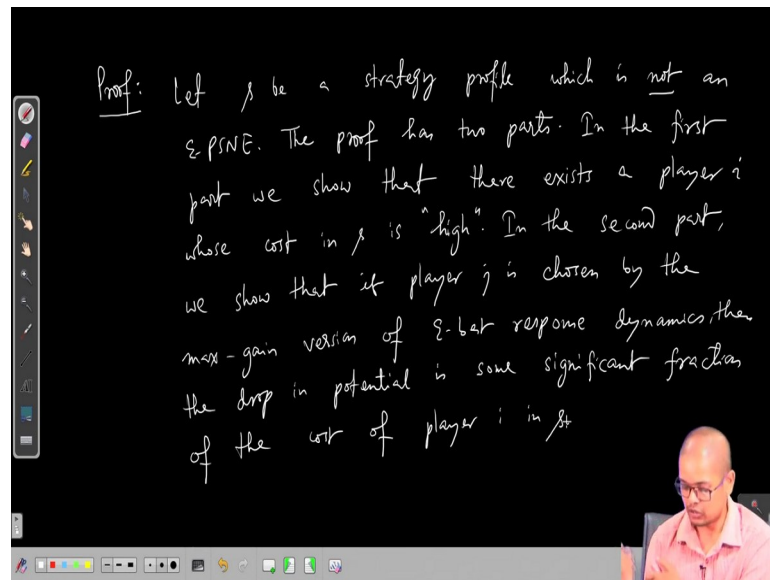 Proof: Let s be a strategy profile which is not an
ε-PSNE. The proof has two parts. In the first
part we show that there exists a player i
whose cost in s is "high". In the second part,
we show that if player j is chosen by the
max-gain version of ε-best response dynamics, then
the drop in potential is some significant fraction
of the cost of player i in s